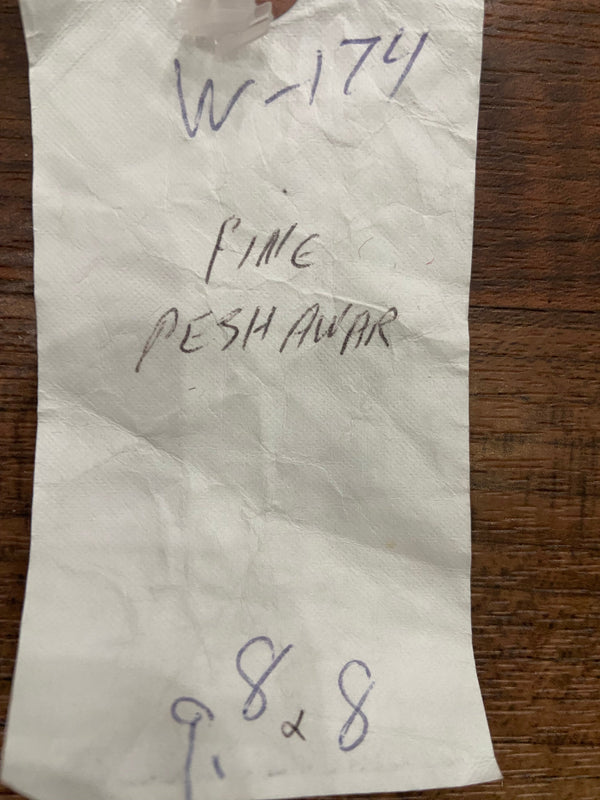 W-174
FINE
PESHAWAR
9.8 x 8